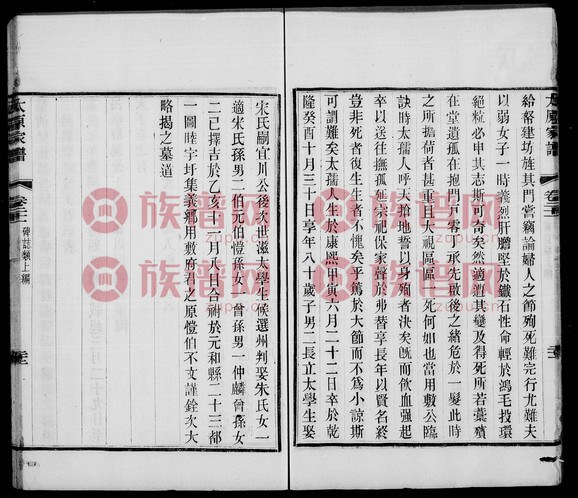 給帑建坊旌其門嘗竊論婦人之節殉死難完行尤難夫
以弱女子一時義烈肝膽堅於鐵石性命輕於鴻毛投環
絕粒必申其志斯可奇矣然適遭其變及得死所若藁殯
在堂遺孤在抱門戶零丁承先啟後之緒危於一髮此時
之所擔荷者甚重且大視區區一死何如也當用敷公臨
訣時太孺人呼天搶地誓以身殉者決矣旣而飲血强起
卒以送往撫孤延宗祀保家聲於弗替享長年以賢名終
豈非死者復生生者不愧矣乎篤於大節而不爲小諒斯
可謂難矣太孺人生於康熙甲寅六月二十二日卒於乾
隆癸酉十月三十日享年八十歲子男二長立太學生娶
宋氏嗣宜川公後次世滋太學生候選州判娶朱氏女一
適宋氏孫男二伯元伯愷孫女一曾孫男一仲麟曾孫女
二已擇吉於乙亥十一月八日合祔於元和縣二十三都
一圖睦字圩集義鄉用敷府君之原愷伯不文謹銓次大
略揭之墓道
太原家譜
卷二十二
碑誌類上編
族谱网
zupu.cn